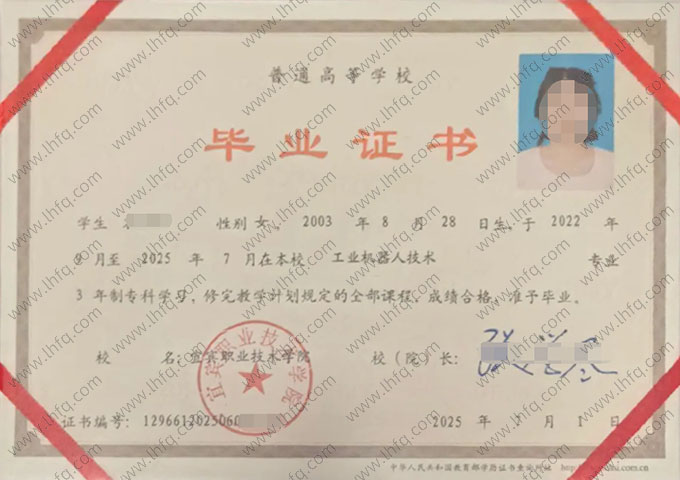 普通高等学校
毕业证书
学生 性别 女，2003 年 8 月 28 日生，于 2022 年
9 月至 2025 年 7 月在本校 工业机器人技术 专业
3 年制专科学习，修完教学计划规定的全部课程，成绩合格，准予毕业。
校 名：宜宾职业技术学院 校（院）长：
宜宾职业技术学院
证书编号：1296612025060 2025 年 7 月 1 日
中华人民共和国教育部学历证书查询网址
www.lhfq.com